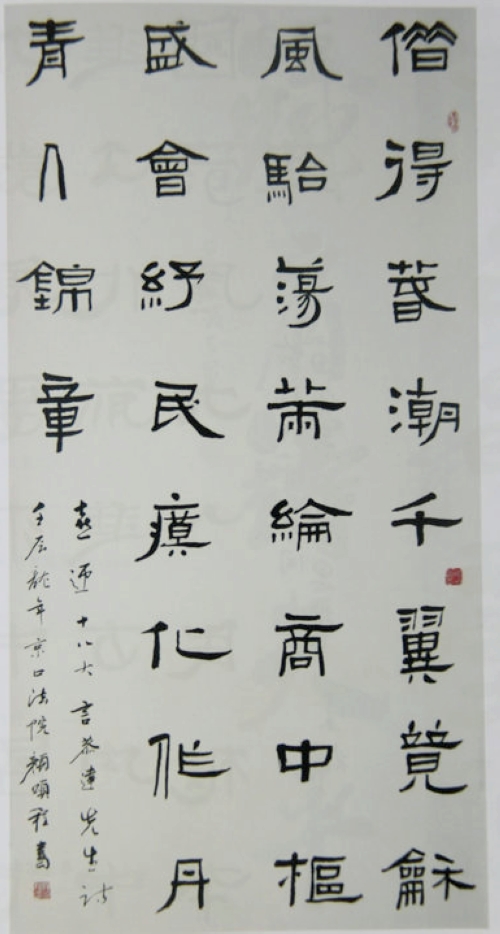 得春潮千翼競龢
風駘蕩綸商中樞
盛會紓民瘼化作丹
青入錦章
喜迎十八大言恭達先生詩
壬辰龍年京口法院顏頌書